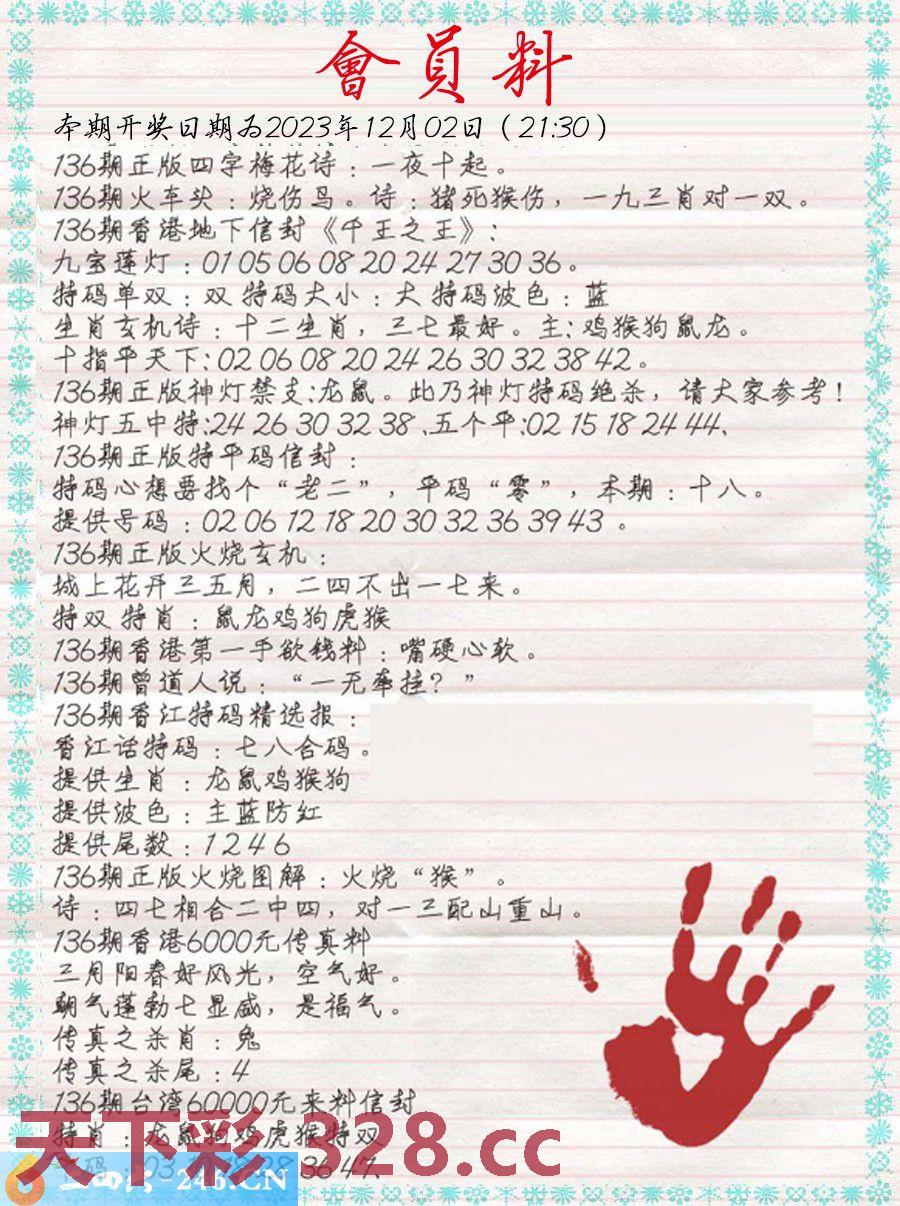 會員料
本期开奖日期为2023年12月02日（21:30）
136期正版四字梅花诗：一夜十起。
136期火车头：烧伤鸟。诗：猪死猴伤，一九三肖对一双。
136期香港地下信封《千王之王》：
九宝莲灯：01 05 06 08 20 24 27 30 36。
特码单双：双 特码大小：大 特码波色：蓝
生肖玄机诗：十二生肖，三七最好。主：鸡猴狗鼠龙。
十指平天下：02 06 08 20 24 26 30 32 38 42。
136期正版神灯禁支：龙鼠。此乃神灯特码绝杀，请大家参考！
神灯五中特：24 26 30 32 38、五个平：02 15 18 24 44、
136期正版特平码信封：
特码心想要找个“老二”，平码“零”，本期：十八。
提供号码：02 06 12 18 20 30 32 36 39 43 。
136期正版火烧玄机：
城上花开三五月，二四不出一七来。
特双 特肖：鼠龙鸡狗虎猴
136期香港第一手欲钱料：嘴硬心软。
136期曾道人说：“一无牵挂？”
136期香江特码精选报：
香江话特码：七八合码。
提供生肖：龙鼠鸡猴狗
提供波色：主蓝防红
提供尾数：1 2 4 6
136期正版火烧图解：火烧“猴”。
诗：四七相合二中四，对一三配山重山。
136期香港6000元传真料
三月阳春好风光，空气好。
朝气蓬勃七显威，是福气。
传真之杀肖：兔
传真之杀尾：4
136期台湾60000元来料信封
特肖：龙鼠狗鸡虎猴特双
天下彩 328.cc
246.CN